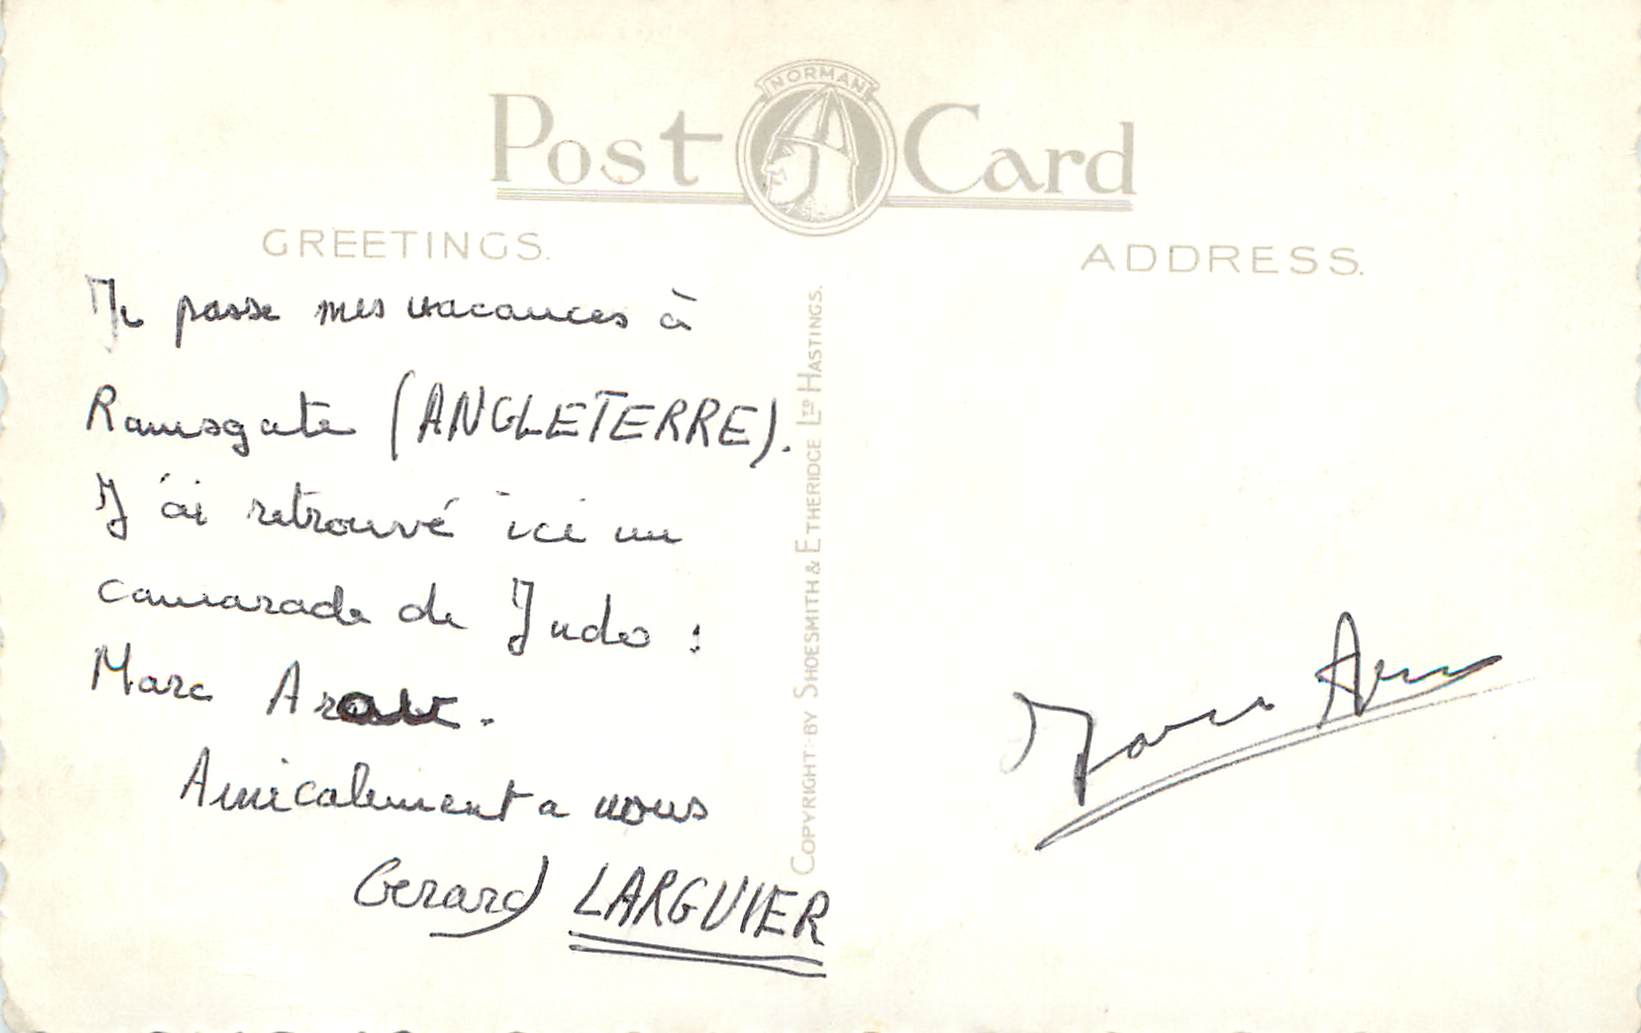 NORMAN
Post Card
GREETINGS.
ADDRESS.
Je passe mes vacances à
Ramsgate (ANGLETERRE).
J'ai retrouvé ici un
camarade de Judo :
Marc
Amicalement a vous
Gerard LARGUIER
COPYRIGHT BY SHOESMITH & ETHERIDGE LTD HASTINGS.
Marc